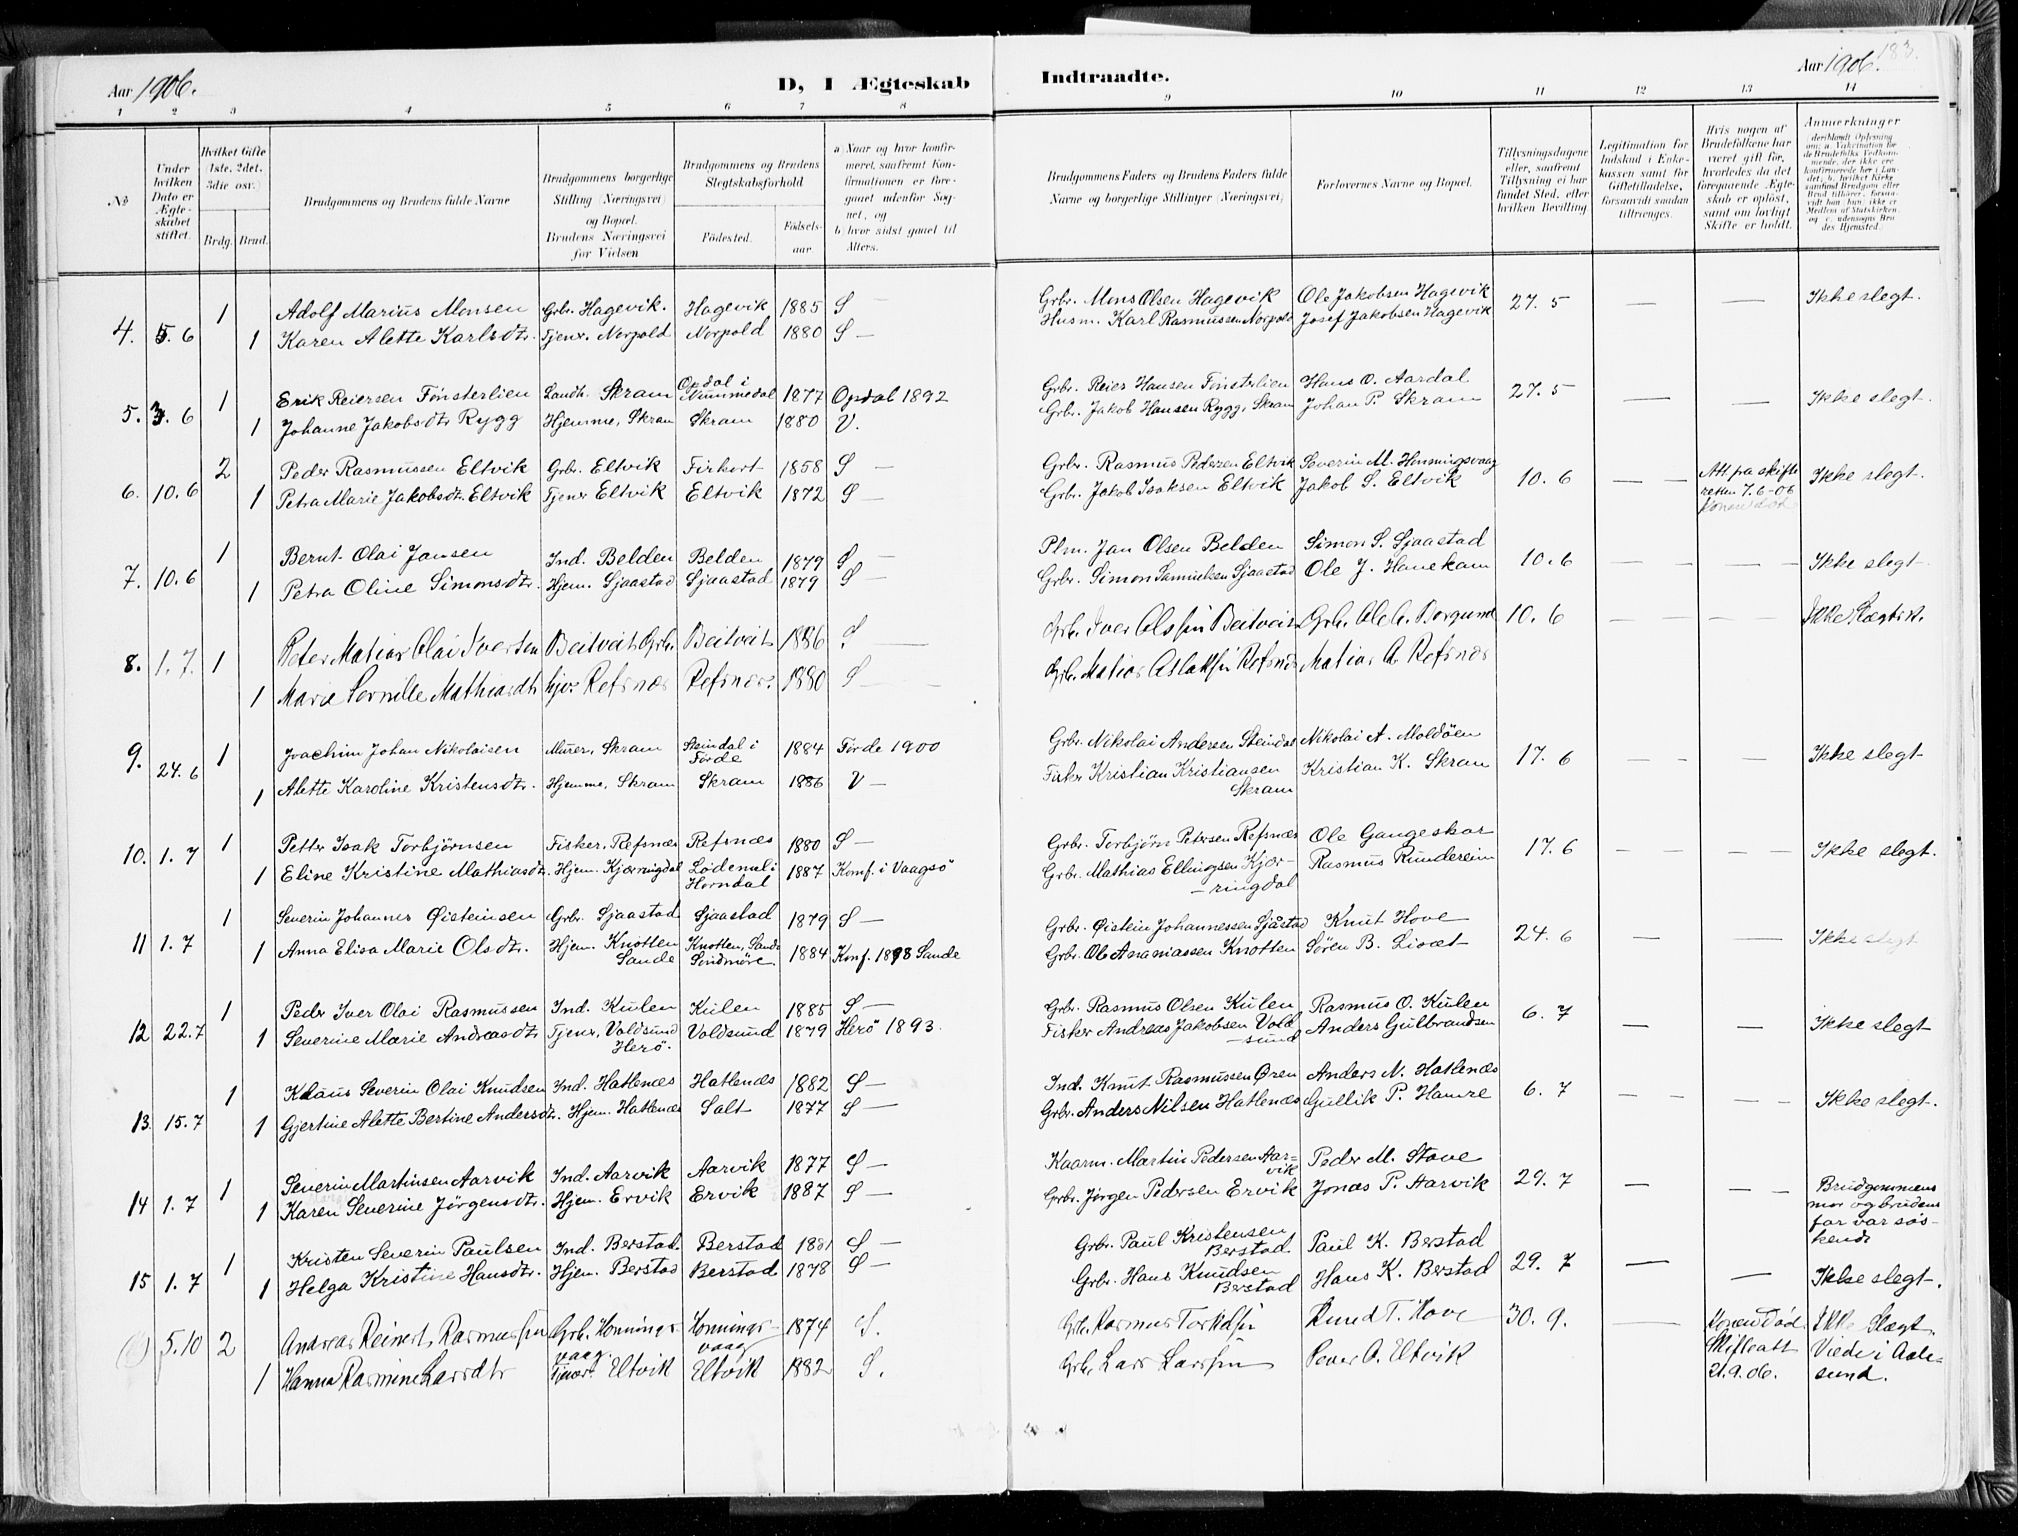 183.
Aar 1906.
D, I Ægteskab
Indtraadte.
Aar 1906.
1 2 3 4 5 6 7 8 9 10 11 12 13 14
No
Under hvilken Dato er Ægteskabet stiftet.
Hvilket Gifte (1ste, 2det, 3die osv.)
Brdg. Brud.
Brudgommens og Brudens fulde Navne
Brudgommens borgerlige Stilling (Næringsvei) og Bopæl. Brudens Næringsvei før Vielsen
Brudgommens og Brudens Slegtskabsforhold
Födested. Födsels-aar.
a) Naar og hvor konfirmeret, saafremt Konfirmationen er foregaaet udenfor Sognet, og
b) hvor sidst gaaet til Alters.
Brudgommens Faders og Brudens Faders fulde Navne og borgerlige Stillinger (Næringsvei)
Forlovernes Navne og Bopæl.
Tillysningsdagene eller, saafremt Tillysning ei har fundet Sted, efter hvilken Bevilling.
Legitimation for Indskud i Enkekassen samt for Giftetilladelse, forsaavidt saadan tiltrænges.
Hvis nogen af Brudefolkene har været gift før, hvorledes da det foregaaende Ægteskab er opløst, samt om lovligt Skifte er holdt.
Anmerkninger
deriblandt Oplysning om: a. Vakcination for de Brudefolks Vedkommende, der ikke ere konfirmerede her i Landet; b. hvilket Kirkesamfund Brudgom eller Brud tilhører, forsaavidt han, hun, ikke er Medlem af Statskirken, og c. udensogns Brudes Hjemsted.
4. 5.6 1 Adolf Marius Monsen Grbr. Hagevik. Hagevik 1885 S — Grbr. Mons Olsen Hagevik Ole Jakobsen Hagevik 27.5 — — Ikke slegt.
1 Karen Alette Karlsdtr. Tjener. Norpold Norpold 1880 S — Husm. Karl Rasmussen Norpold Josef Jakobsen Hagevik
5. 3.6 1 Erik Reiersen Fønsterlien Landh. Skram Opdal i Nummedal 1877 Opdal 1892 Grbr. Reier Hansen Fønsterlien Hans O. Aardal 27.5 — — Ikke slegt.
1 Johanne Jakobsdtr Rygg Hjemme, Skram Skram 1880 V. Grbr. Jakob Hansen Rygg, Skram Johan P. Skram
6. 10.6 2 Peder Rasmussen Eltvik Grbr. Eltvik Firhort 1858 S — Grbr. Rasmus Pedersen Eltvik Severin M. Henningsvaag 10.6 — — Att. fra skifteretten 7.6-06 Konen død Ikke slegt.
1 Petra Marie Jakobsdtr. Eltvik Tjener Eltvik Eltvik 1872 S — Grbr. Jakob Isaksen Eltvik Jakob S. Eltvik
7. 10.6 1 Bernt Olai Jansen Ind. Belden Belden 1879 S — Plm. Jan Olsen Belden Simon S. Sjaastad 10.6 — — Ikke slegt.
1 Petra Oline Simonsdtr. Hjem. Sjaastad Sjaastad 1879 S Grbr. Simon Samuelsen Sjaastad Ole J. Hanekam
8. 1.7. 1 Peter Matias Olai Iversen Beitveit Grbr. Beitveit 1886 S — Grb. Iver Olsen Beitveit Grb. Ole A. Borgund 10.6 — — Ikke Slegtsk.
1 Marie Pernille Mathiasdtr hjv. Refsnes Refsnes. 1880 S — Grb. Matias Aslaksen Refsnes Matias A. Refsnes
9. 24.6 1 Joachim Johan Nikolaisen Murer, Skram Steindal i Førde 1884 Førde 1900 Grbr. Nikolai Andersen Steindal Nikolai A. Moldöen 17.6 — — Ikke slegt
1 Alette Karoline Kristensdtr. Hjemme, Skram Skram 1886 V — Fisker Kristian Kristiansen Skram Kristian K. Skram
10. 1.7 1 Petter Isak Torbjørnsen Fisker, Refsnæs Refsnæs 1880 S — Grbr. Torbjørn Petersen Refsnæs Ole Gangeskar 17.6 — — Ikke slegt.
1 Eline Kristine Mathiasdtr. Hjem. Kjærringdal Lødemel i Horndal 1887 Konf. i Vaagsö Grbr. Mathias Ellingsen Kjær-ringdal Rasmus Rundereim
11 1.7 1 Severin Johannes Øisteinsen Grbr. Sjaastad Sjaastad 1879 S — Grbr. Øistein Johannessen Sjåstad Knut Hove 24.6 — — Ikke slegt
1 Anna Elisa Marie Olsdtr. Hjem. Knotten Sande Knotten, Sande Söndmöre 1884 Konf. 1898 Sande Grbr. Ole Ananiassen Knotten Søren B. Liset
12 22.7 1 Peder Iver Olai Rasmussen Ind. Kulen Kulen 1885 S — Grbr. Rasmus Olsen Kulen Rasmus O. Kulen 6.7 — — Ikke slegt
1 Severine Marie Andreasdtr Tjener, Voldsund Herö. Voldsund 1879 Herö 1893. Fisker Andreas Jakobsen Vold-sund Anders Gulbrandsen
13. 15.7 1 Klaus Severin Olai Knudsen Ind. Hatlenæs Hatlenæs 1882 S — Ind. Knut Rasmussen Øren Anders N. Hatlenæs 6.7 — — Ikke slegt.
1 Gjertine Alette Bertine Andersdtr. Hjem. Hatlenæs Salt 1877 S — Grbr. Anders Nilsen Hatlenæs Gullik P. Hamre
14 1.7 1 Severin Martinsen Aarvik Ind. Aarvik Aarvik 1877 S — Kaarm. Martin Pedersen Aarvik Peder M. Stave 29.7 — — Brudgommens mor og brudens far var søskende
1 Karen Severine Jørgensdtr. Hjem. Ervik Ervik 1887 S — Grbr. Jørgen Pedersen Ervik Jonas P. Aarvik
15 1.7 1 Kristen Severin Paulsen Ind. Berstad. Berstad 1881 S — Grbr. Paul Kristensen Berstad Paul K. Berstad 29.7 — — Ikke slegt.
1 Helga Kristine Hansdtr. Hjem. Berstad Berstad 1878 S — Grbr. Hans Knudsen Berstad Hans K. Berstad
(16) 5.10 2 Andreas Reinert Rasmussen Grb. Honningsvaag Honningsvaag 1874 S. Grb. Rasmus Torkildsen Knud T. Hove 30.9. — Konen død Skifteatt 21.9.06. Ikke Slegt. Viede i Aalesund.
1 Hanna Rasmine Larsdtr Tjener Eltvik Eltvik 1882 S. Grb. Lars Larssen Peder A. Eltvik